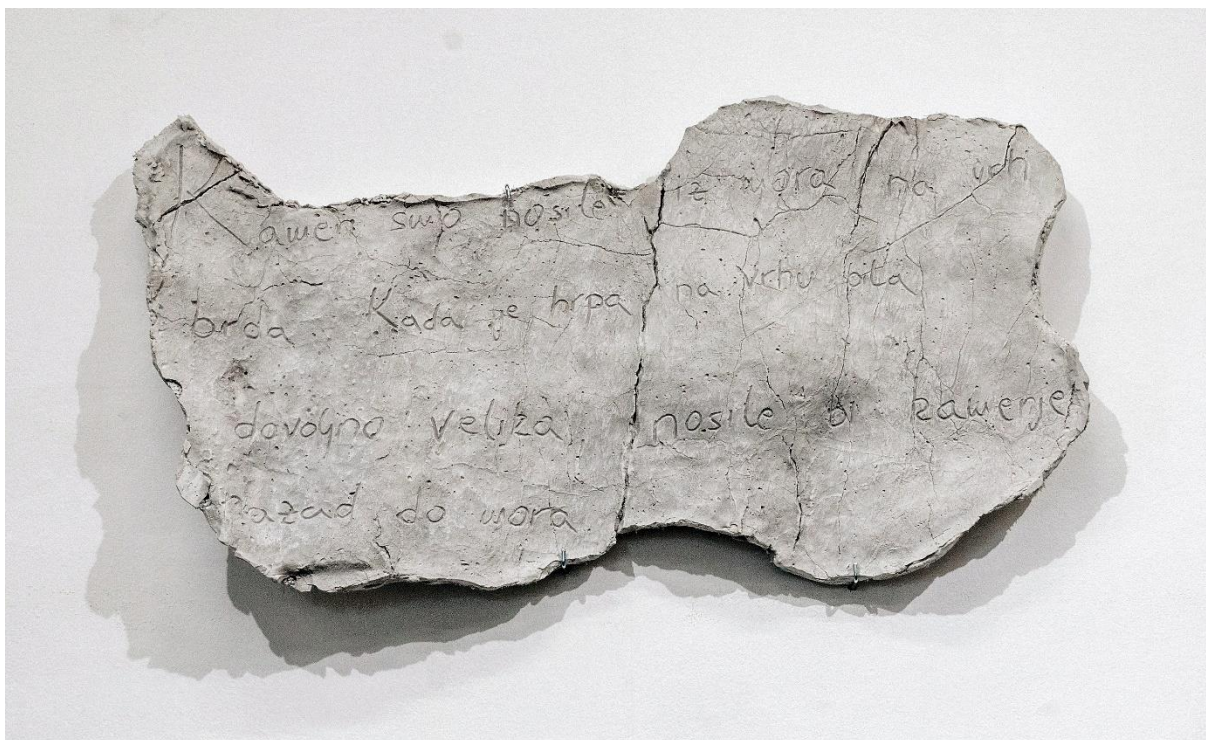 Kamen smo nosile iz mora na vrh
brda. Kada je hrpa na vrhu bila
dovoljno velika nosile bi kamenje
nazad do mora